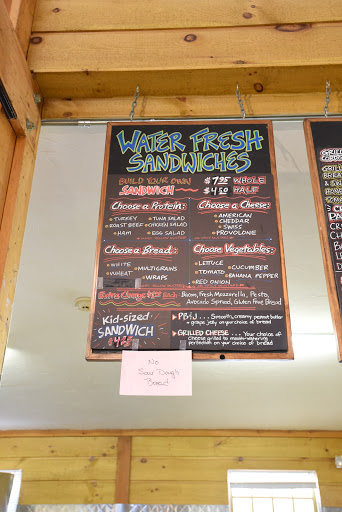 WATER FRESH
SANDWICHES
BUILD YOUR OWN
SANDWICH
$7.25 WHOLE
$4.50 HALF
Choose a Protein:
TURKEY
ROAST BEEF
HAM
TUNA SALAD
CHICKEN SALAD
EGG SALAD
Choose a Cheese:
AMERICAN
CHEDDAR
SWISS
PROVOLONE
Choose a Bread:
WHITE
WHEAT
MULTIGRAINS
WRAPS
Choose Vegetables:
LETTUCE
TOMATO
RED ONION
CUCUMBER
BANANA PEPPER
Extra Charge Each
Bacon, Fresh Mozzarella, Pesto,
Avocado Spread, Gluten Free Bread
Kid-sized
SANDWICH
PB&J ... Smooth, creamy peanut butter
+ grape jelly on your choice of bread
GRILLED CHEESE ... Your choice of
Cheese grilled to mouth-watering
perfection on your choice of bread
No
Sour Dough
Bread